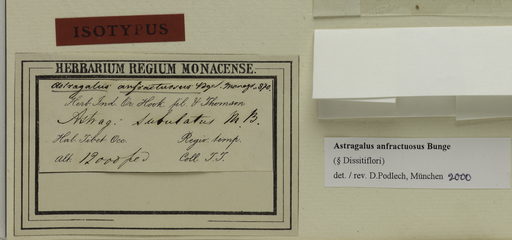 ISOTYPUS
HERBARIUM REGIUM MONACENSE.
Astragalus anfractuosus Bge. Monogr.
Herb. Ind. Or. Hook. fil. & Thomson
Astrag: subulatus M.B.
Hab. Tibet Occ. Regio temp.
alt. 12000 ped Coll. T.T.
Astragalus anfractuosus Bunge
(§ Dissitiflori)
det. / rev. D.Podlech, München 2000